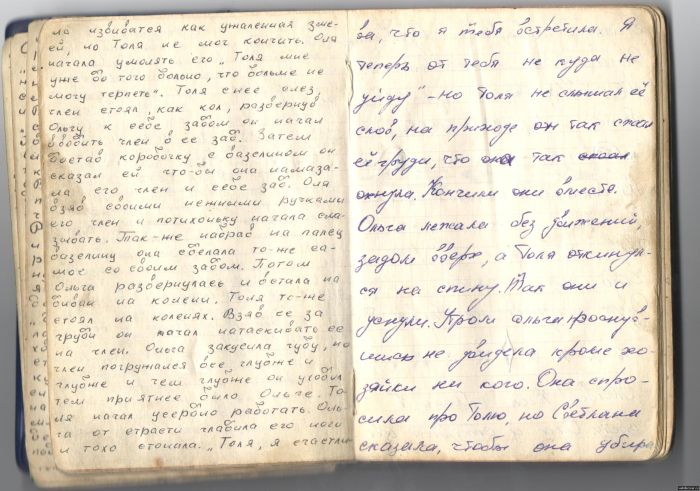 ло извиватся как ужаленная зме-
ей, но Толя не мог кончить. Оля
начала умолять его „Толя мне
уже до того больно, что больше не
могу терпеть". Толя с нее слез,
член стоял, как кол, развернув
Ольгу к себе задом он начал
вводить член в ее зад. Затем
достав коробочку с вазелином он
сказал ей что-бы она намаза-
ла его член и себе зад. Оля
взяв своими нежными ручками
его член и потихоньку начала сма-
зывать. Так-же набрав на палец
вазелину она сделала то-же са-
мое со своим задом. Потом
Ольга развернулась и встала на
диван на колени. Толя то-же
стоял на коленях. Взяв ее за
груди он начал натаскивать ее
на член. Ольга закусила губу, но
член погружался все глубже и
глубже и чем глубже он уходил
тем приятнее было Ольге. То-
ля начал усердно работать. Оль-
га от страсти гладила его ноги
и тихо стонала. „Толя, я счастли-
ва, что я тебя встретила. Я
теперь от тебя не куда не
уйду" – Но Толя не слышал её
слов, на приходе он так сжал
её груди, что она так
охнула. Кончили они вместе.
Ольга лежала без движений,
задом вверх, а Толя откинул-
ся на спину. Так они и
уснули. Утром Ольга проснув-
шись не увидела кроме хо-
зяйки ни кого. Она спро-
сила про Толю, но Светлана
сказала, чтобы она убира